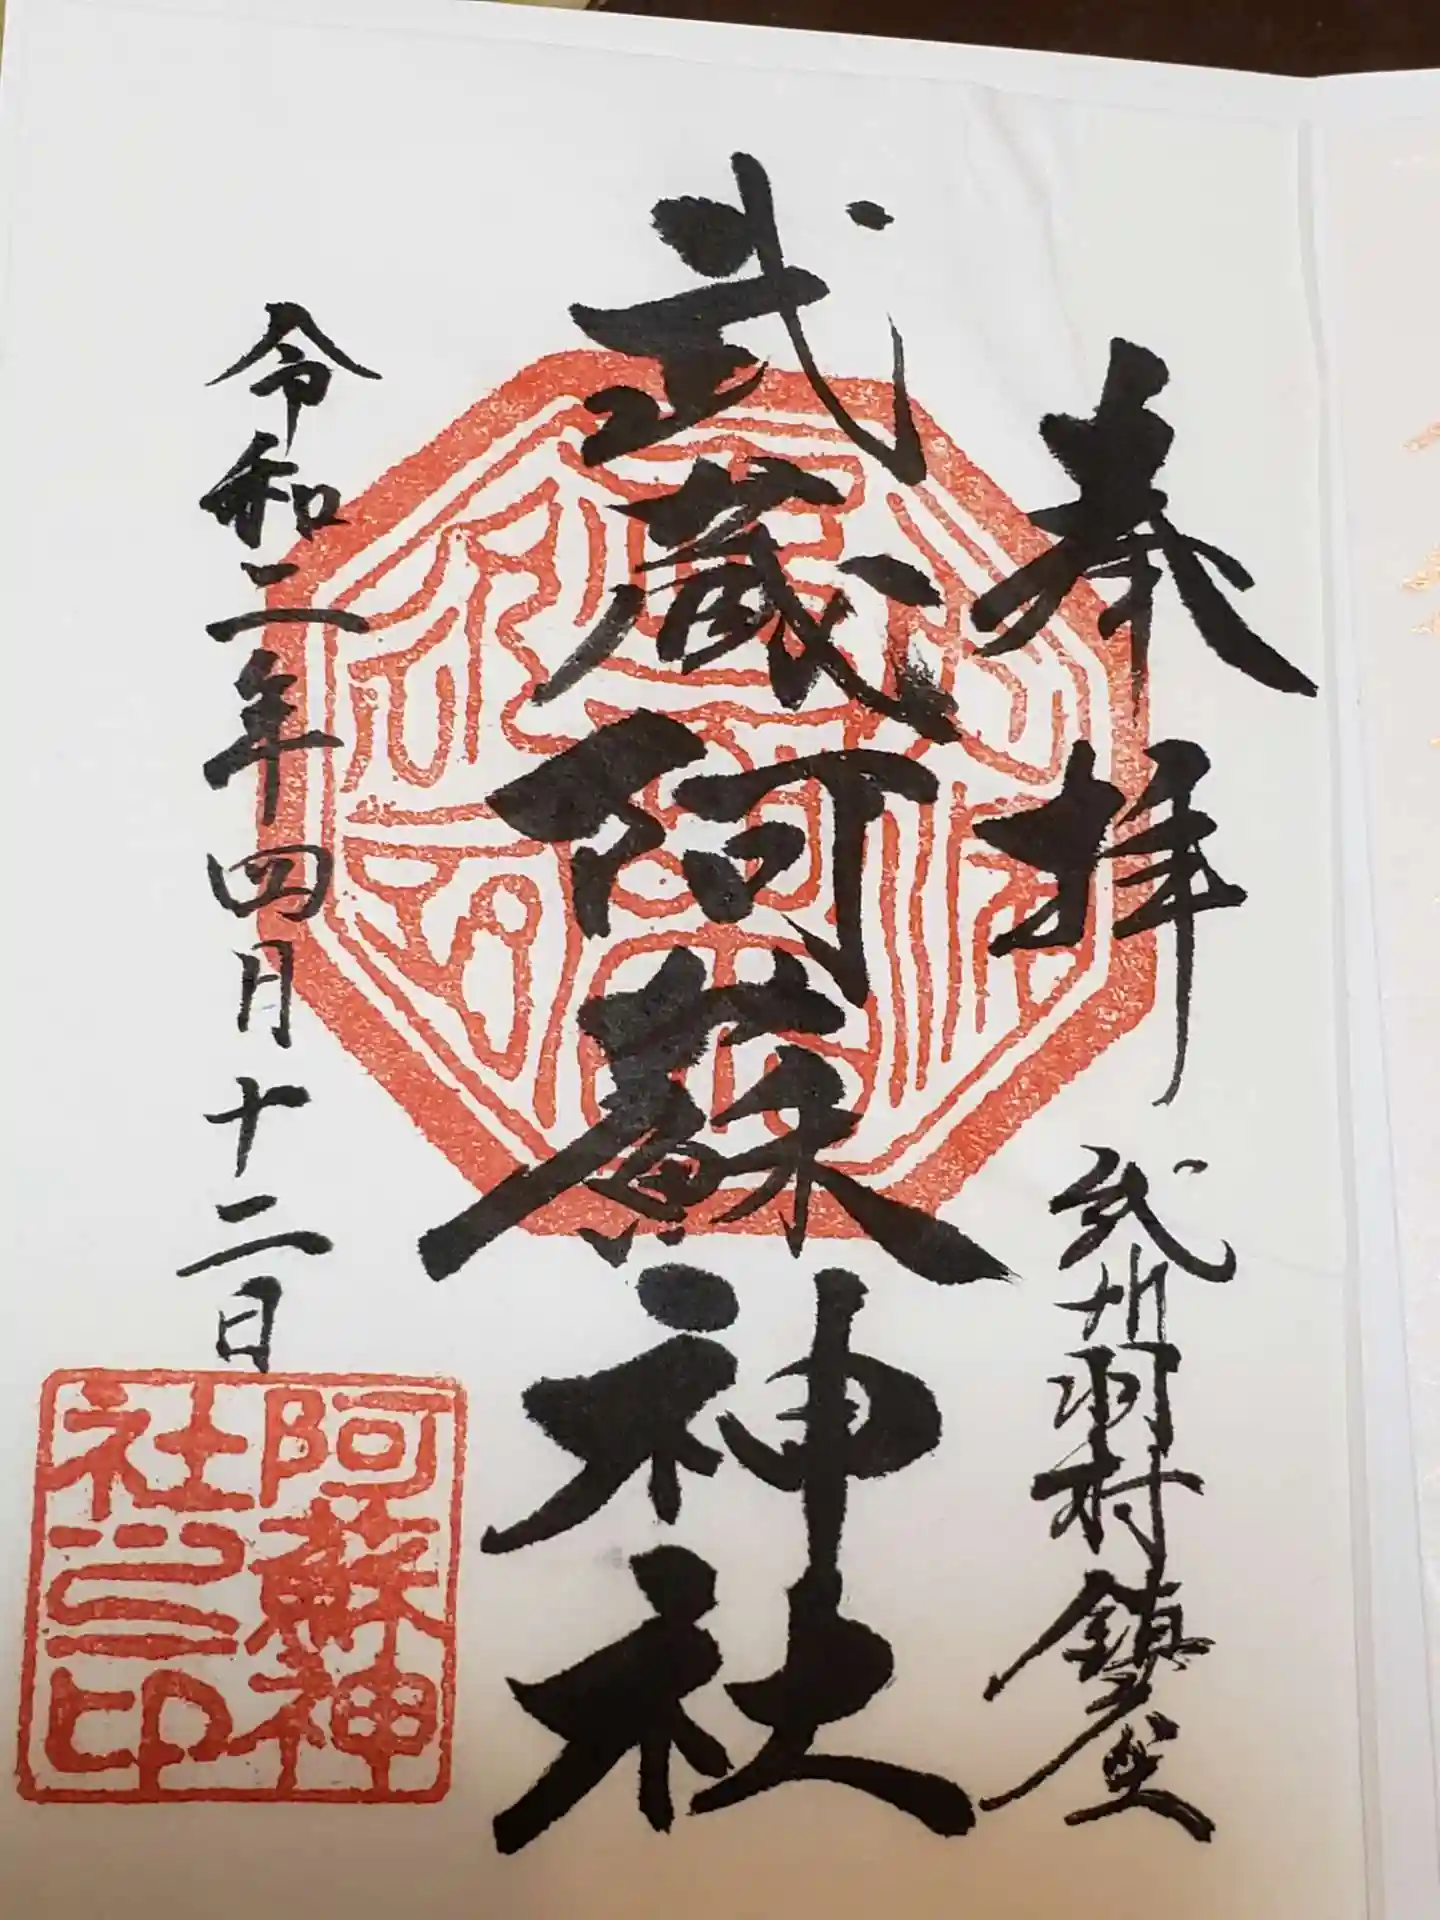 奉拝
武州羽村鎮座
武蔵阿蘇神社
令和二年四月十二日
阿蘇神
社之印